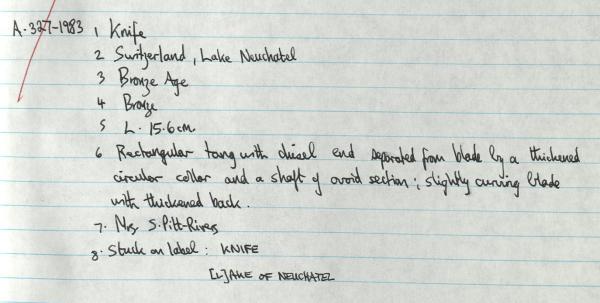 A.327-1983 1 Knife
2 Switzerland, Lake Neuchatel
3 Bronze Age
4 Bronze
5 L. 15.6cm.
6 Rectangular tang with chisel end separated from blade by a thickened
circular collar and a shaft of ovoid section; slightly curving blade
with thickened back.
7. Mrs S. Pitt-Rivers
8. Stuck on label: KNIFE
[L]AKE OF NEUCHATEL